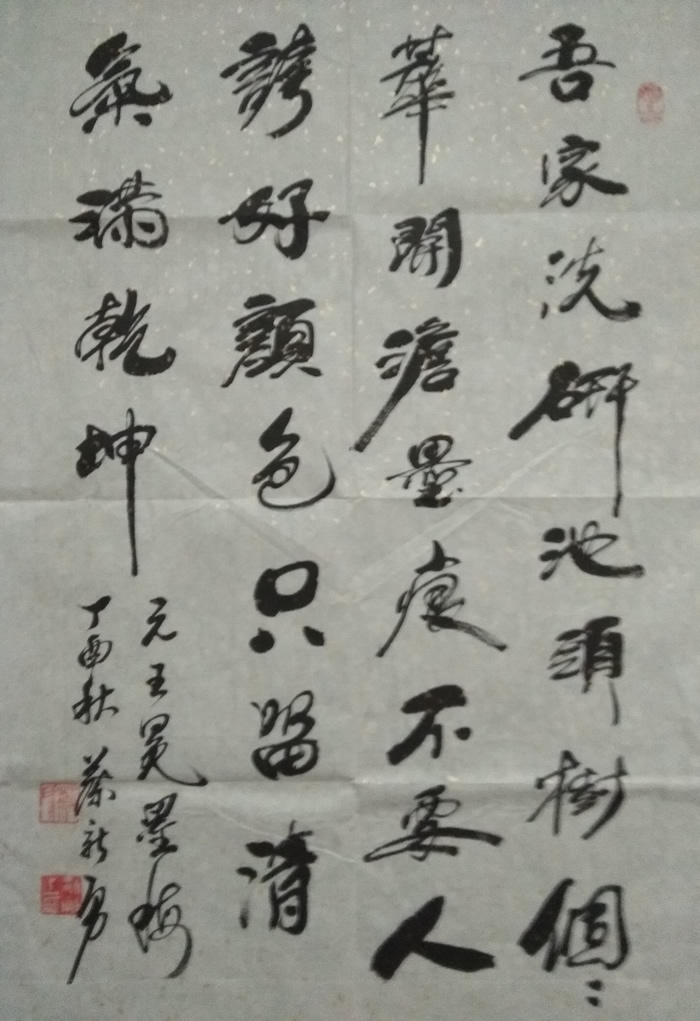 吾家洗研池頭樹個〻
華開澹墨痕不要人
誇好顏色只留清
氣滿乾坤
元王冕墨梅
丁酉秋 新勇